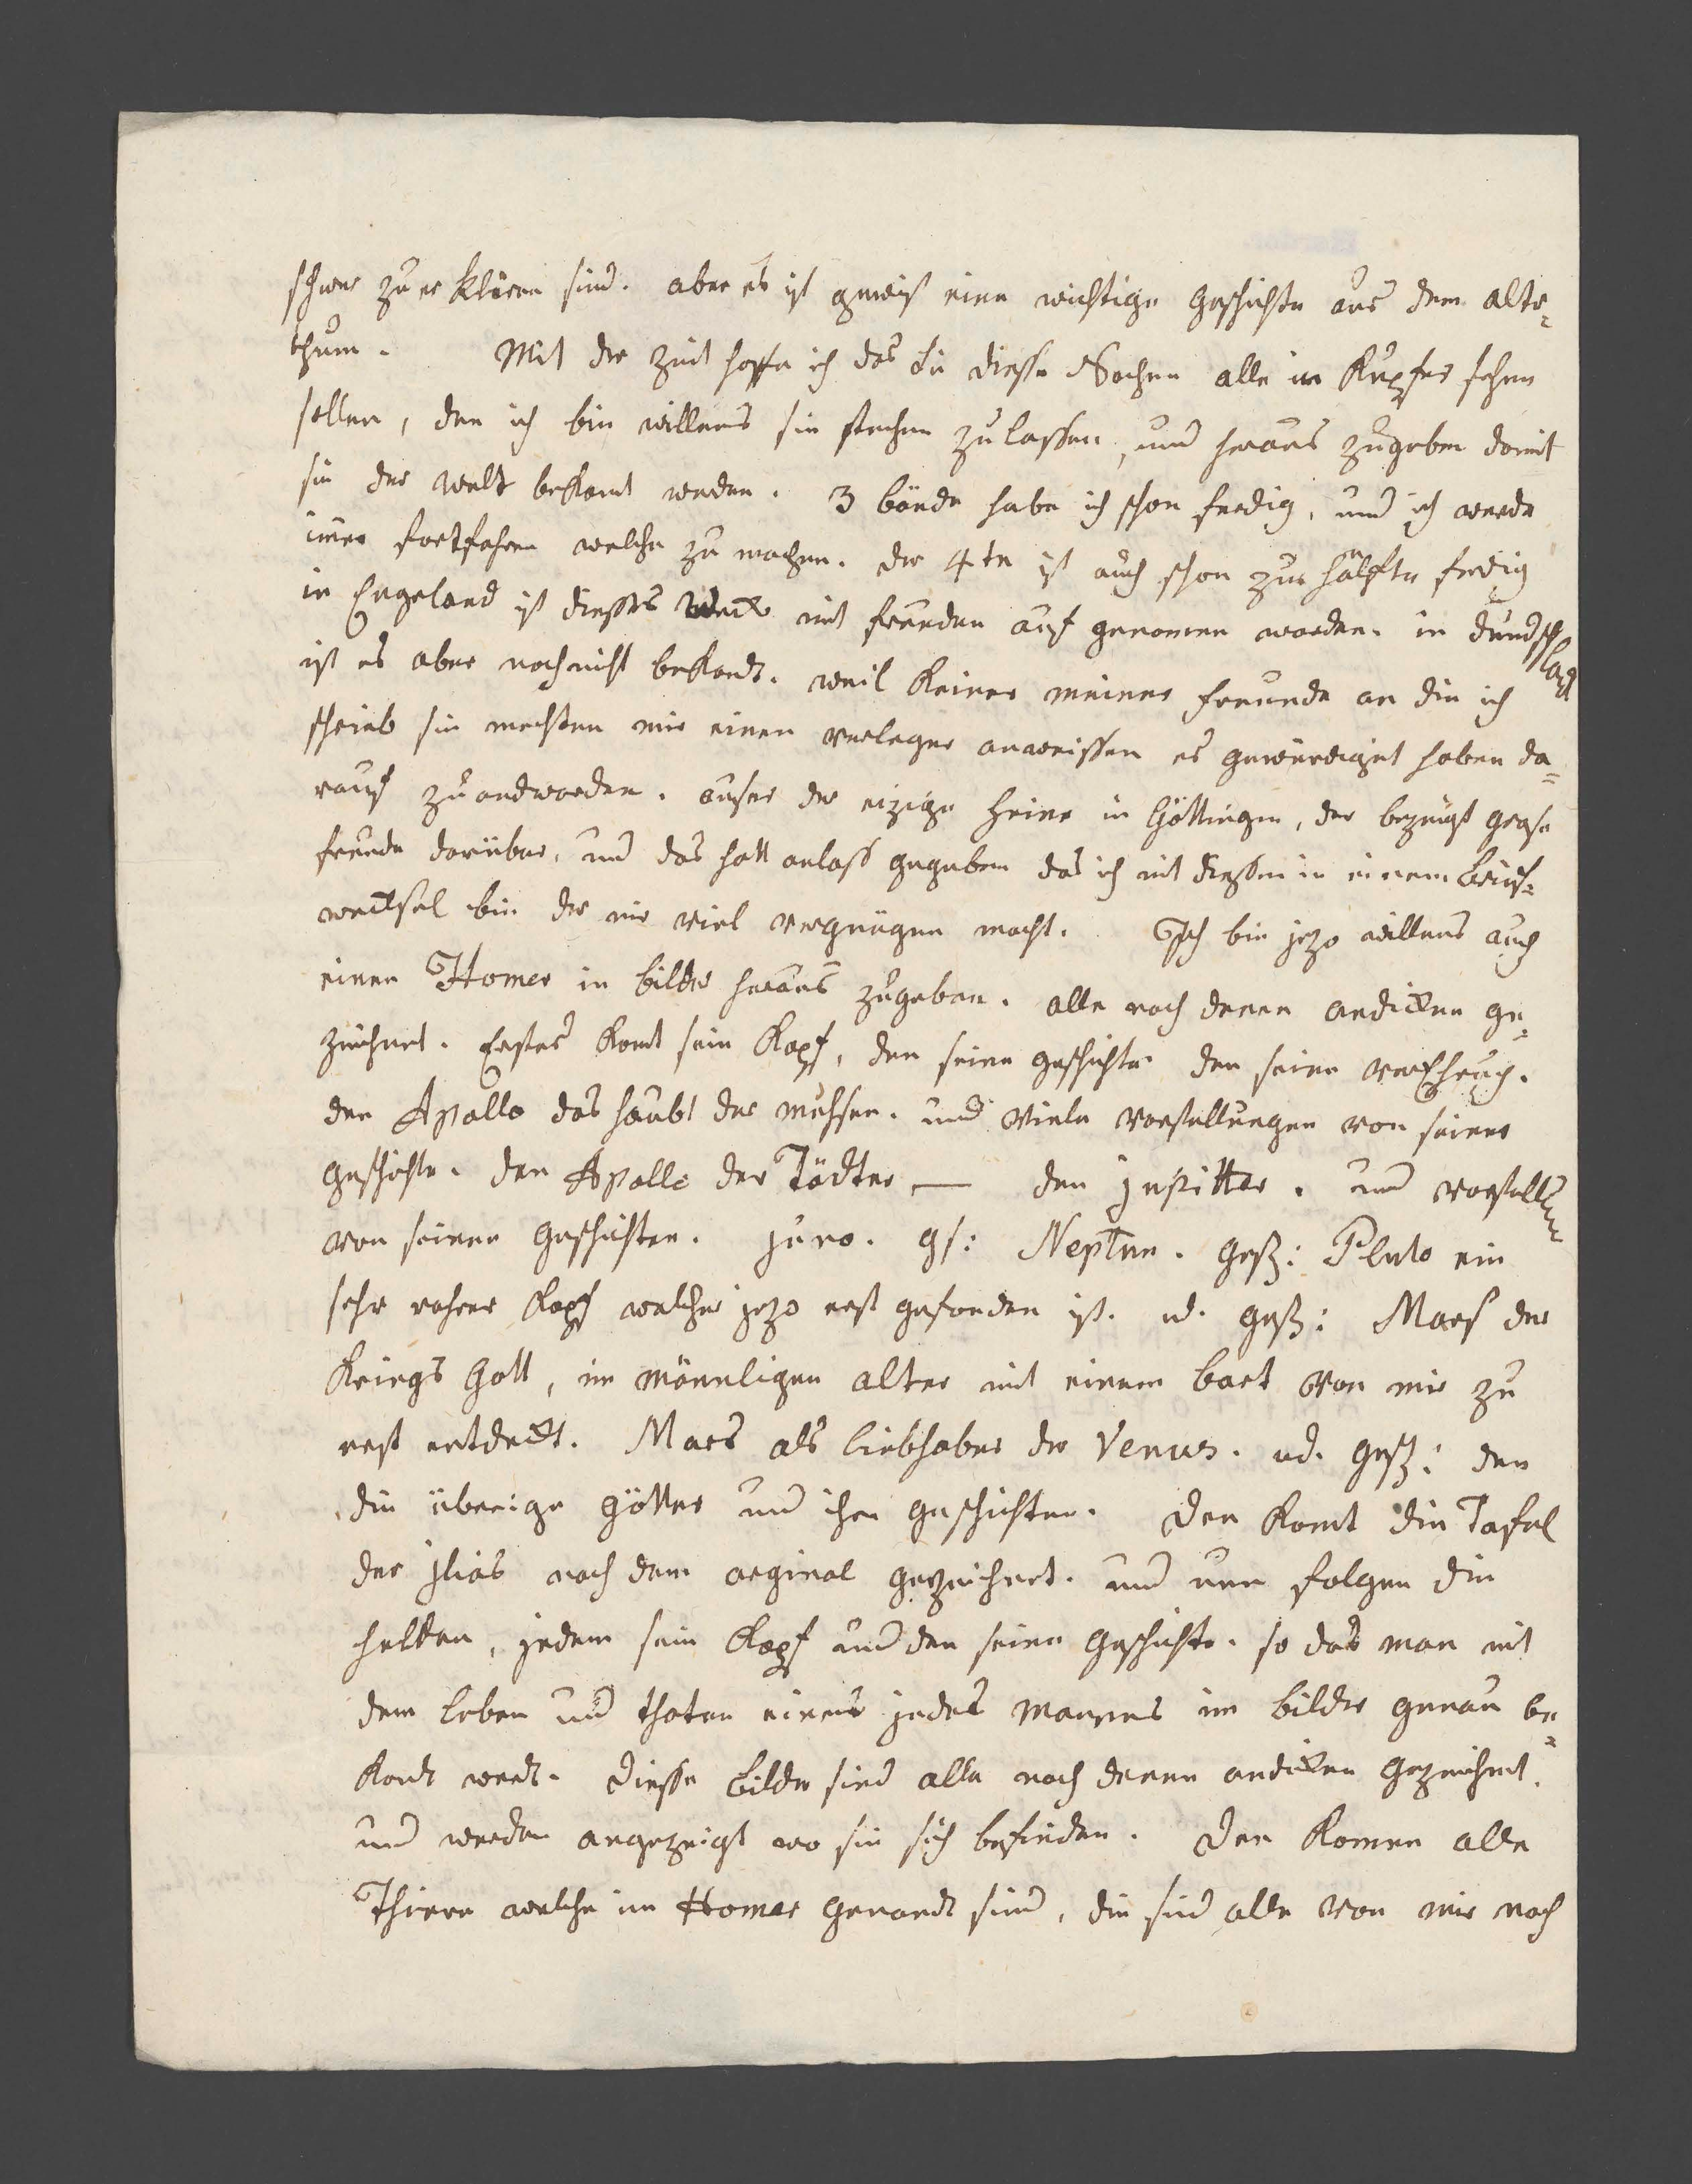 schwer zu er klären sind. aber es ist gewiß eine wichtige geschichte aus dem alter=
thum. Mit der zeit hoffe ich das sie diesse Sachen alle in Kupfer sehen
sollen, den ich bin willens sie stechen zu lassen, und heraus zugeben damit
sie der welt bekant werden. 3 bände habe ich schon ferdig, und ich werde
imer fortfahren welche zu machen. der 4te ist auch schon zur hälfte ferdig
in Engeland ist diesses Werck mit freuden auf genomen worden. in deudschland
ist es aber noch nicht bekandt. weil keiner meiner freunde an die ich
schrieb sie mechten mir einen verleger anweissen es gewürdiget haben da=
rauf zu andworden. ausser der eizige Heine in Göttingen, der bezeugt grose
freude darüber, und das hatt anlass gegeben das ich mit diessen in einem brief=
wechsel bin der mir viel vergnügen macht. Ich bin jezo willens auch
einen Homer in bilder heraus zugeben. alle nach denen andicken ge=
zeichnet. Erstes komt sein Kopf, den seine geschichte den seine verEhrung.
den Apollo das haubt der muhsen. und viele vorstellungen von seiner
geschichte. den Apollo der Tödter — den jupitter. und vorstellungen
von seinen geschichten. juno. gs: Neptun. gesch: Pluto ein
sehr rahrer Kopf welcher jezo erst gefonden ist. ud. gesch: Mars der
Kriegs Gott, im mänligen alter mit einem bart von mir zu
erst entdeckt. Mars als liebhaber der Venus. ud. gesch: den
die überige götter und ihre geschichten. Den komt die Tafel
der jlias nach dem orginal gezeichnet. und nun folgen die
helden, jedem sein Kopf und den seine geschichte. so das man mit
dem leben und thaten eines jedes mannes im bilder genau be=
kandt werdt. Diesse bilder sind alle nach denen andicken gezeichnet.
und werden angezeigt wo sie sich befinden. Den komen alle
Thiere welche im Homer genandt sind, die sind alle von mir nach